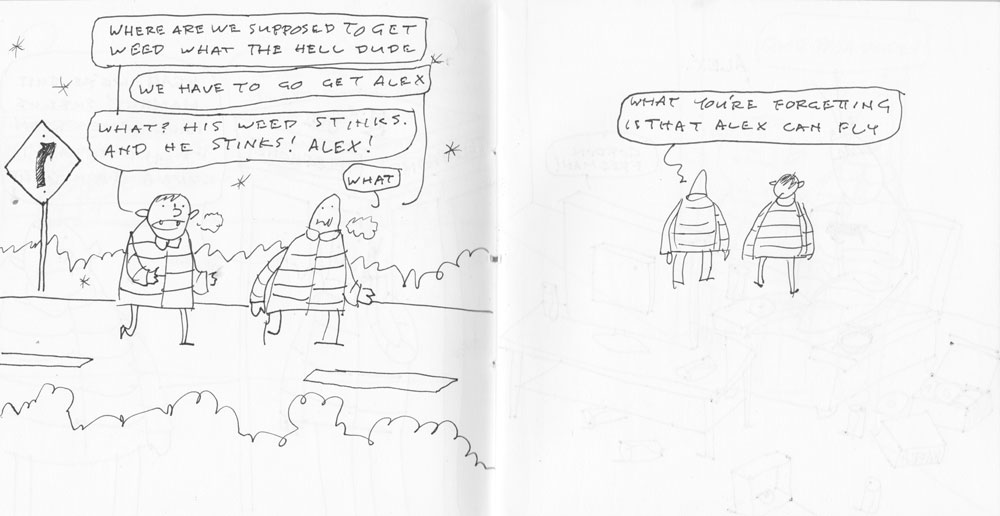 WHERE ARE WE SUPPOSED TO GET
WEED WHAT THE HELL DUDE
WE HAVE TO GO GET ALEX
WHAT? HIS WEED STINKS.
AND HE STINKS! ALEX!
WHAT
WHAT YOU'RE FORGETTING
IS THAT ALEX CAN FLY